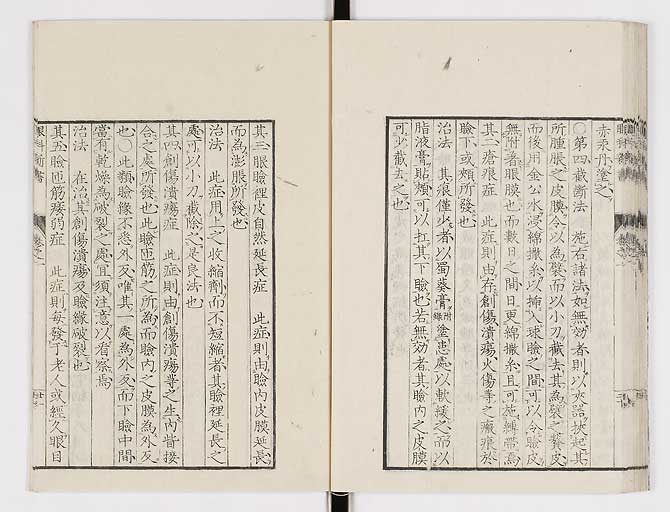 赤朱丹塗之
〇第四截断法 施右諸法如無効者則以夾鋁挾起其
所腫脹之皮膜令以為襞而以小刀截去其為襞之贅皮
而後用金公水浸綿撒糸以挿入球瞼之間可以令瞼皮
無附著眼膜也而數日之間日更綿撒糸且可施縛帶焉
其二瘡痕症 此症則由在創傷潰瘍火傷等之瘢痕於
瞼下或頬所發也
治法 其痕僅少者以蜀葵膏附錄塗患處以軟緩之而以
脂液膏貼頬可以扛其下瞼也若無効者其瞼内之皮膜
可少截去之也
其三眼瞼裡皮自然延長症 此症則由瞼内皮膜延長
而為澎脹所發也
治法 此症用一之收縮劑而不短縮者其瞼裡延長之
處可以小刀截除之是良法也
其四創傷潰瘍症 此症則由創傷潰瘍等之生内眥接
合之處所發也此瞼匝筋之所為而瞼内之皮膜為外反
也〇此類瞼緣不悉外反唯其一處為外反而下瞼中間
當有乾燥為破裂之處宜須注意以看察焉
治法 在治其創傷潰瘍及瞼緣破裂也
其五瞼匝筋痿弱症 此症則每發于老人或經久眼目